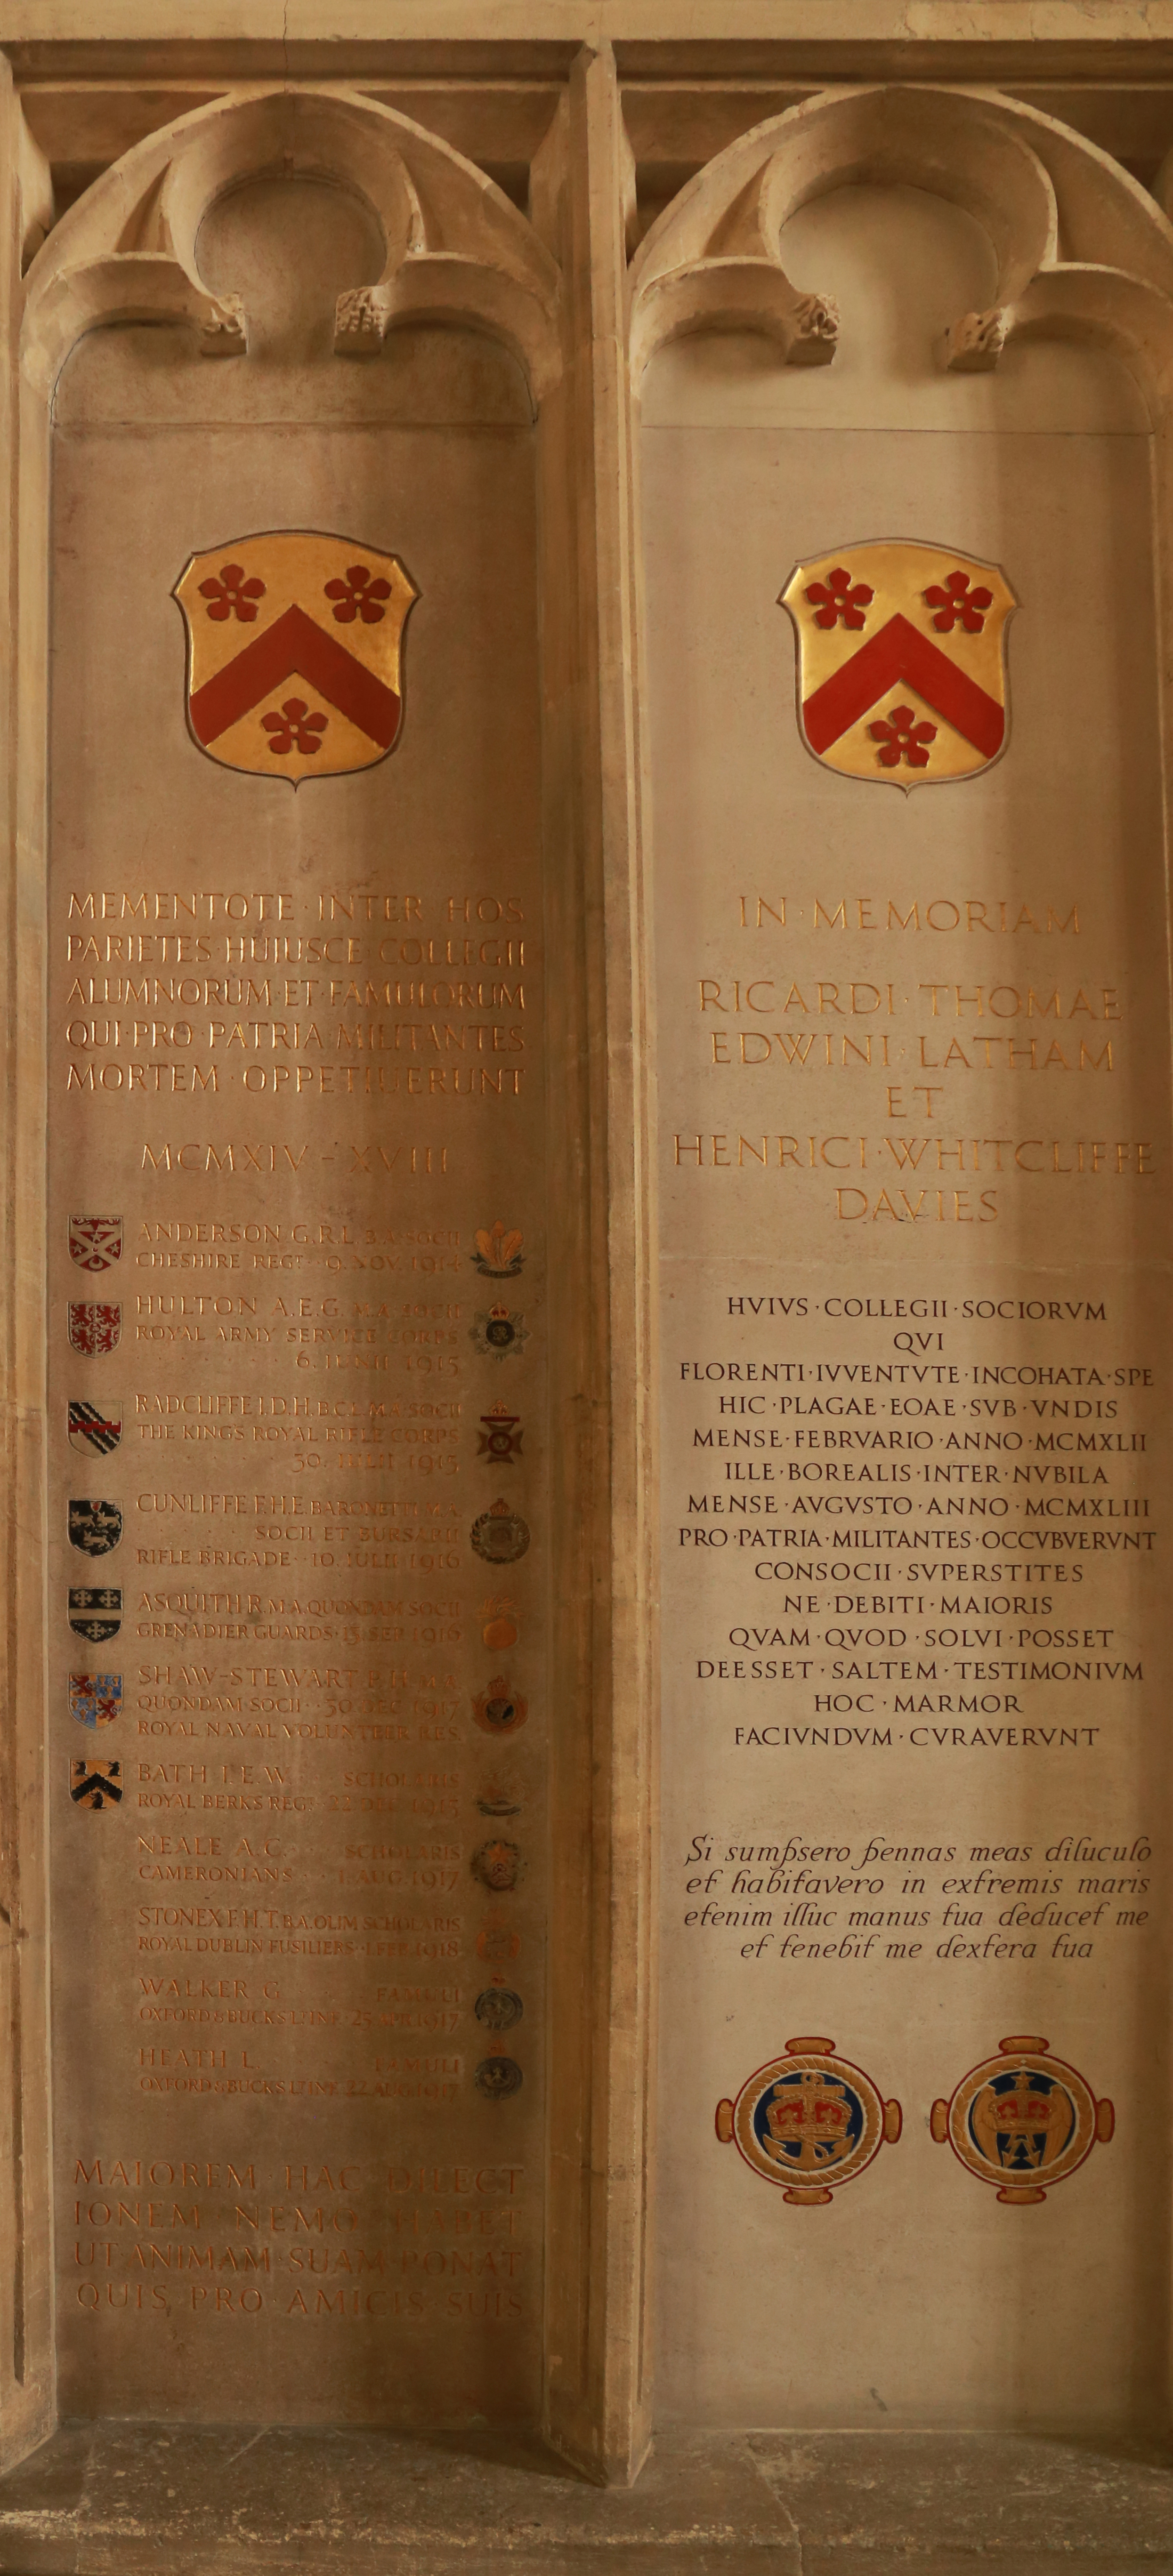 MEMENTOTE · INTER HOS
PARIETES · HUIUSCE COLLEGII
ALUMNORUM · ET · FAMULORUM
QUI · PRO · PATRIA · MILITANTES
MORTEM · OPPETIUERUNT
MCMXIV - XVIII
ANDERSON G.R.L. B.A. SOCII
CHESHIRE REGT · 9. NOV. 1914
HULTON A.E.G. M.A. SOCII
ROYAL ARMY SERVICE CORPS
6. IUNII 1915
RADCLIFFE I.D.H. B.C.L. M.A. SOCII
THE KINGS ROYAL RIFLE CORPS
30. IULII 1915
CUNLIFFE F.H.E. BARONETTI M.A.
SOCII ET BURSARII
RIFLE BRIGADE · 10. IULII 1916
ASQUITH R. M.A. QUONDAM SOCII
GRENADIER GUARDS · 15. SEP. 1916
SHAW-STEWART P.H. M.A.
QUONDAM SOCII · 30. DEC. 1917
ROYAL NAVAL VOLUNTEER RES.
BATH L.E.W. SCHOLARIS
ROYAL BERKS REGT
NEALE A.C. SCHOLARIS
CAMERONIANS · 1. AUG. 1917
STONEX F.H.T. B.A. OLIM SCHOLARIS
ROYAL DUBLIN FUSILIERS · 1. FEB. 1918
WALKER G. FAMULI
OXFORD & BUCKS LT INF. 25 APR. 1917
HEATH L. FAMULI
OXFORD & BUCKS LT INF. 22 AUG. 1917
MAIOREM · HAC DILECT
IONEM NEMO HABET
UT · ANIMAM · SUAM · PONAT
QUIS PRO · AMICIS · SUIS
IN · MEMORIAM
RICARDI · THOMAE
EDWINI · LATHAM
ET
HENRICI · WHITCLIFFE
DAVIES
HVIVS · COLLEGII · SOCIORVM
QVI
FLORENTI · IVVENTVTE · INCOHATA · SPE
HIC · PLAGAE · EOAE · SVB · VNDIS
MENSE · FEBRVARIO · ANNO · MCMXLII
ILLE · BOREALIS · INTER · NVBILA
MENSE · AVGVSTO · ANNO · MCMXLIII
PRO · PATRIA · MILITANTES · OCCVBVERVNT
CONSOCII · SVPERSTITES
NE · DEBITI · MAIORIS
QVAM · QVOD · SOLVI · POSSET
DEESSET · SALTEM · TESTIMONIVM
HOC · MARMOR
FACIVNDVM · CVRAVERVNT
Si sumpsero pennas meas diluculo
et habitavero in extremis maris
etenim illuc manus tua deducet me
et tenebit me dextera tua